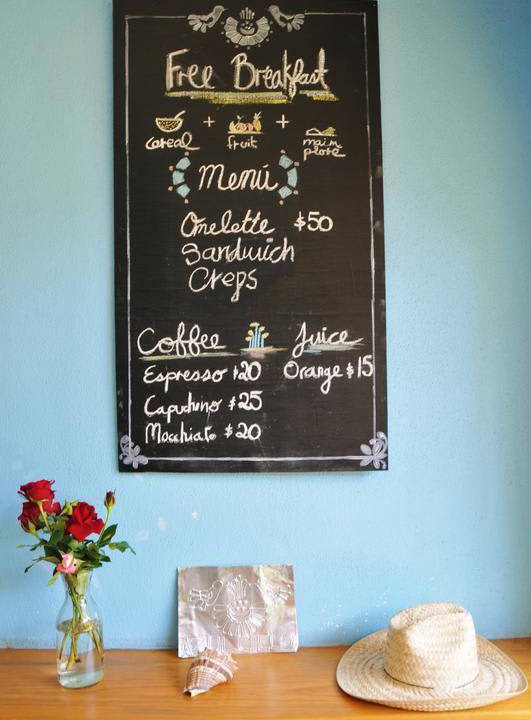 Free Breakfast
cereal + fruit + maim plate
Menú
Omelette $50
Sandwich
Creps
Coffee
Espresso $20
Capuchino $25
Mocchiato $20
Juice
Orange $15